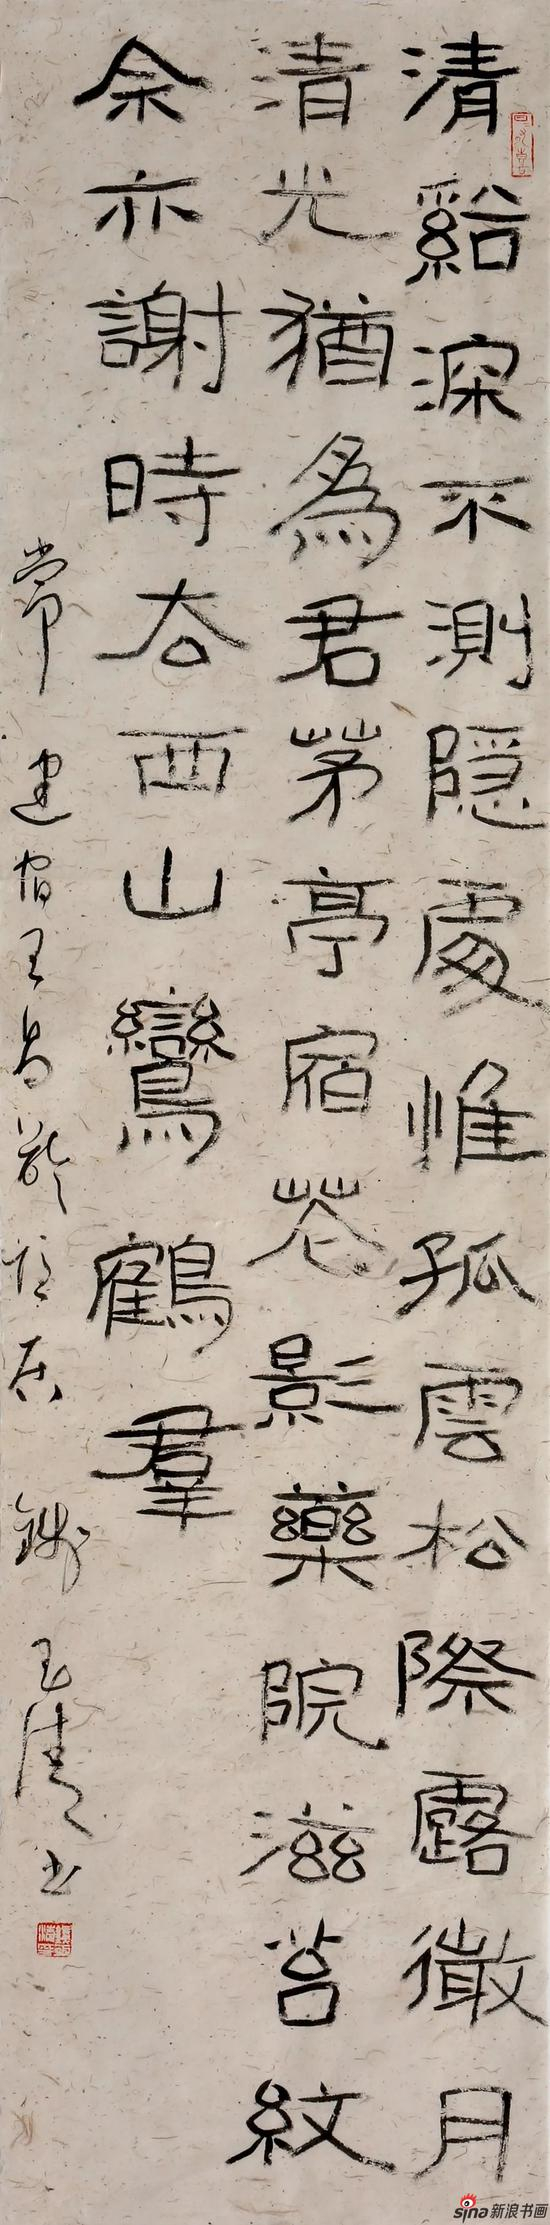 清谿深不測隱處惟孤雲松際露微月
清光猶為君茅亭宿花影藥院滋苔紋
余亦謝時去西山鸞鶴羣
常建宿王昌齡隱居 錢玉清書
sina新浪书画